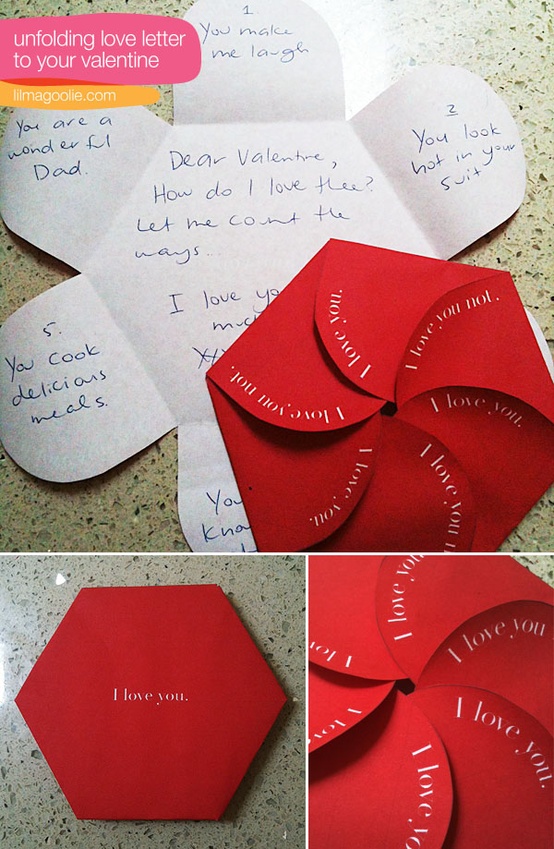 unfolding love letter
to your valentine
lilmagoolie.com
1
You make
me laugh
2
You look
hot in your
suit
You are a
wonderful
Dad.
Dear Valentine,
How do I love thee?
Let me count the
ways...
I love yo
muc
XX
5.
You cook
delicious
meals.
You
kno
I love you.
I love you not.
I love you.
I love you n
I love you.
I love you not.
I love you.
I love you
I love you
I love you.
I love yo
I
I lov